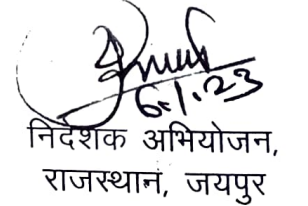 6.1.23
निदेशक अभियोजन,
राजस्थान, जयपुर